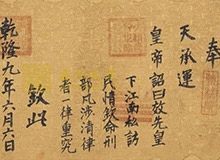 奉
天承運
皇帝詔曰故先皇
下江南私訪
民情欽命刑
部凡涉清律
者一律重究
欽此
乾隆九年六月六日